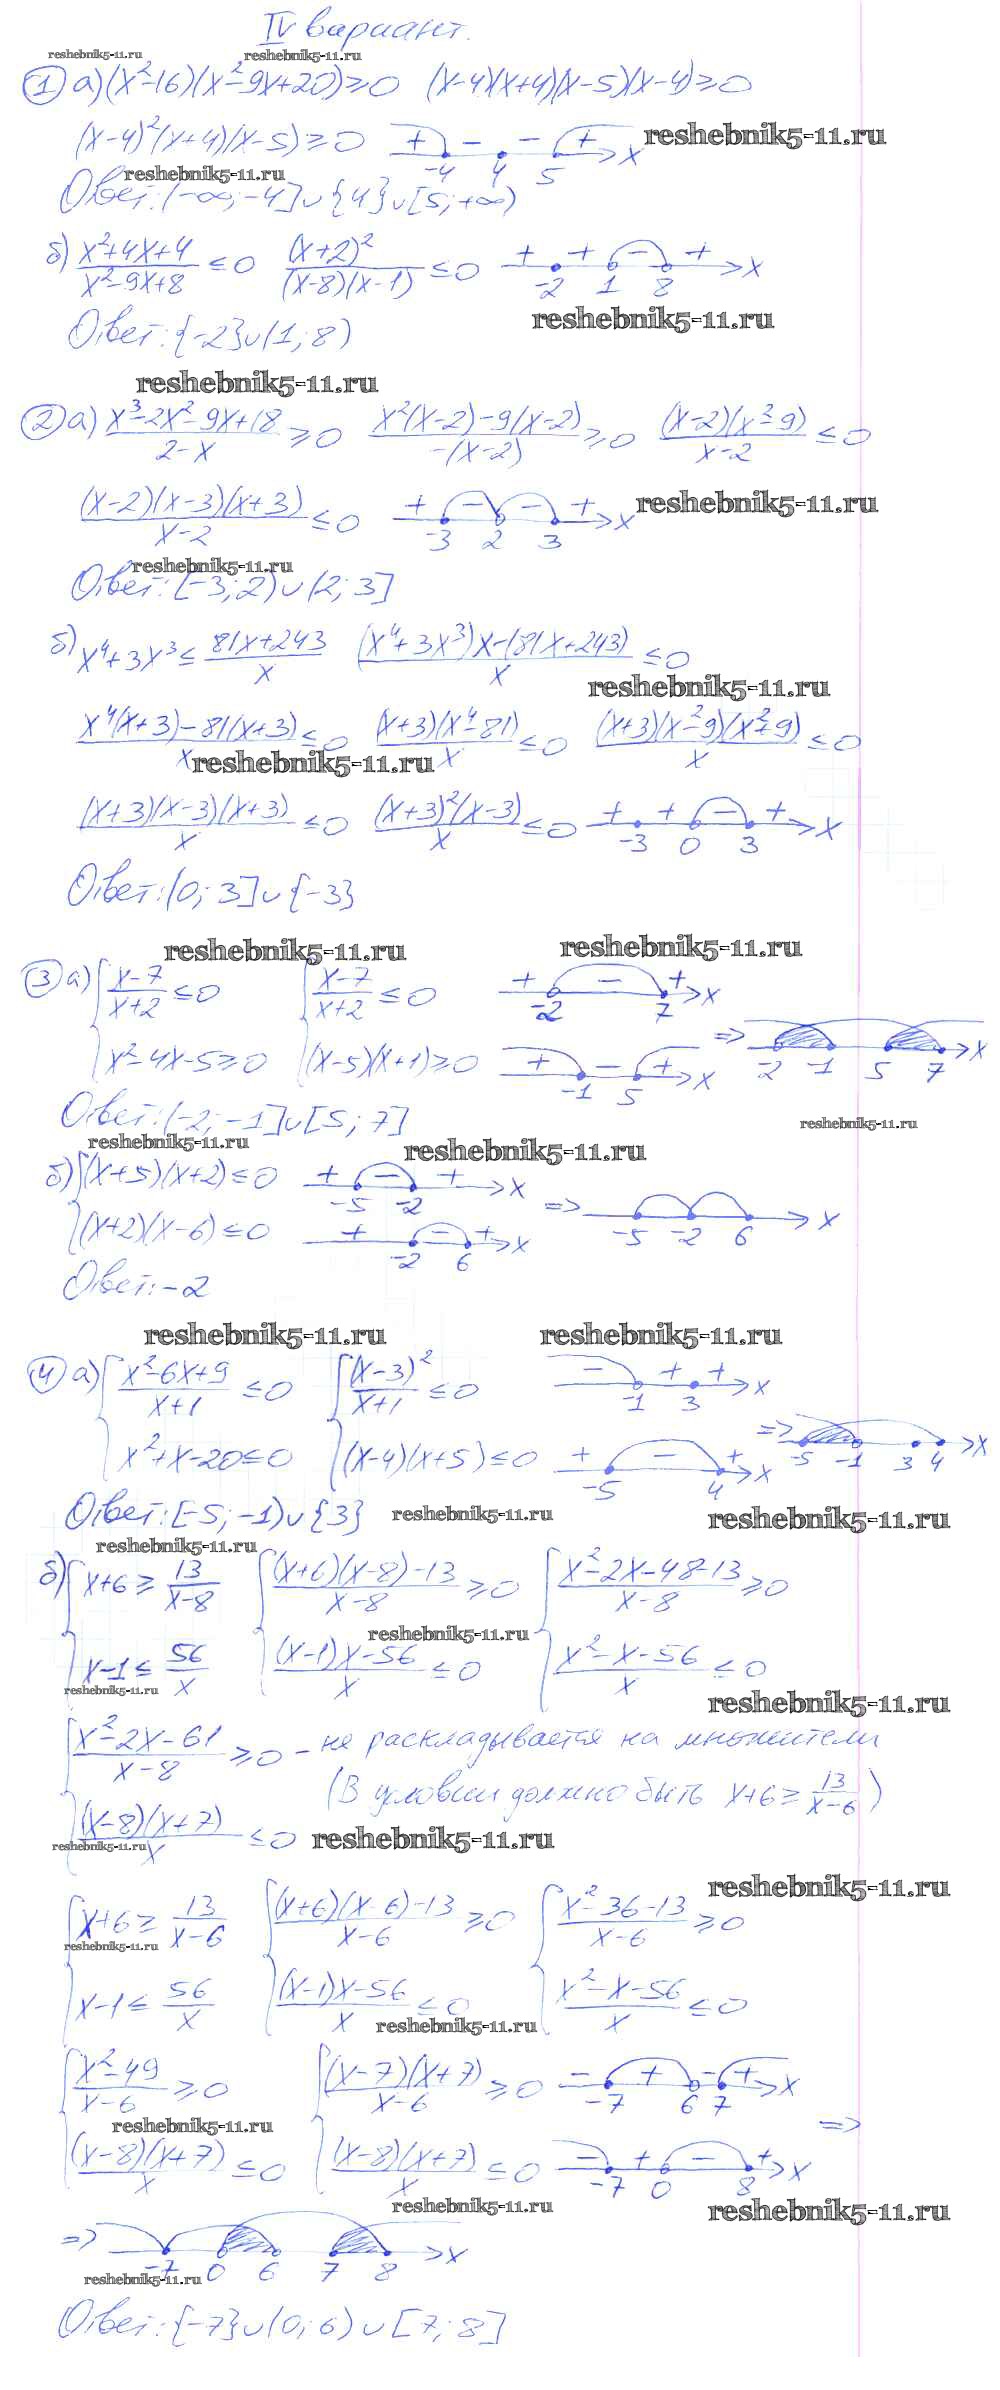 IV вариант.
reshebnik5-11.ru reshebnik5-11.ru
1 а) (x²-16)(x²-9x+20)≥0 (x-4)(x+4)(x-5)(x-4)≥0
(x-4)²(x+4)(x-5)≥0 + - - + -4 4 5 x reshebnik5-11.ru
reshebnik5-11.ru
Ответ: (-∞; -4]∪{4}∪[5; +∞)
б) (x²+4x+4)/(x²-9x+8) ≤0 (x+2)²/((x-8)(x-1)) ≤0 + + - + -2 1 8 x
reshebnik5-11.ru
Ответ: {-2}∪(1; 8)
reshebnik5-11.ru
2 а) (x³-2x²-9x+18)/(2-x) ≥0 (x²(x-2)-9(x-2))/(-(x-2)) ≥0 ((x-2)(x²-9))/(x-2) ≤0
((x-2)(x-3)(x+3))/(x-2) ≤0 + - - + -3 2 3 x reshebnik5-11.ru
reshebnik5-11.ru
Ответ: [-3; 2)∪(2; 3]
б) x⁴+3x³ ≤ (81x+243)/x ((x⁴+3x³)x-(81x+243))/x ≤0
reshebnik5-11.ru
(x⁴(x+3)-81(x+3))/x ≤0 ((x+3)(x⁴-81))/x ≤0 ((x+3)(x²-9)(x²+9))/x ≤0
reshebnik5-11.ru
((x+3)(x-3)(x+3))/x ≤0 ((x+3)²(x-3))/x ≤0 + + - + -3 0 3 x
Ответ: (0; 3]∪{-3}
reshebnik5-11.ru reshebnik5-11.ru
3 а) { (x-7)/(x+2) ≤0 { (x-7)/(x+2) ≤0 + - + -2 7 x
x²-4x-5≥0 (x-5)(x+1)≥0 + - + -1 5 x => -2 -1 5 7 x
Ответ: (-2; -1]∪[5; 7] reshebnik5-11.ru
reshebnik5-11.ru reshebnik5-11.ru
б) { (x+5)(x+2)≤0 + - + -5 -2 x
(x+2)(x-6)≤0 + - + -2 6 x => -5 -2 6 x
Ответ: -2
reshebnik5-11.ru reshebnik5-11.ru
4 а) { (x²-6x+9)/(x+1) ≤0 { (x-3)²/(x+1) ≤0 - + + -1 3 x
x²+x-20≤0 (x-4)(x+5)≤0 + - + -5 4 x => -5 -1 3 4 x
Ответ: [-5; -1)∪{3} reshebnik5-11.ru reshebnik5-11.ru
reshebnik5-11.ru
б) { x+6≥ 13/(x-8) { ((x+6)(x-8)-13)/(x-8) ≥0 { (x²-2x-48-13)/(x-8) ≥0
reshebnik5-11.ru
x-1≤ 56/x ((x-1)x-56)/x ≤0 (x²-x-56)/x ≤0
reshebnik5-11.ru reshebnik5-11.ru
{ (x²-2x-61)/(x-8) ≥0 - не раскладывается на множители
(В условии должно быть x+6≥ 13/(x-6))
((x-8)(x+7))/x ≤0 reshebnik5-11.ru
reshebnik5-11.ru
reshebnik5-11.ru
{ x+6≥ 13/(x-6) { ((x+6)(x-6)-13)/(x-6) ≥0 { (x²-36-13)/(x-6) ≥0
reshebnik5-11.ru
x-1≤ 56/x ((x-1)x-56)/x ≤0 (x²-x-56)/x ≤0
reshebnik5-11.ru
{ (x²-49)/(x-6) ≥0 { ((x-7)(x+7))/(x-6) ≥0 - + - + -7 6 7 x
reshebnik5-11.ru =>
((x-8)(x+7))/x ≤0 ((x-8)(x+7))/x ≤0 - + - + -7 0 8 x
reshebnik5-11.ru reshebnik5-11.ru
=> -7 0 6 7 8 x
reshebnik5-11.ru
Ответ: {-7}∪(0; 6)∪[7; 8]